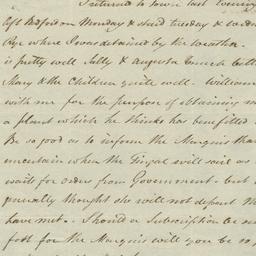 I returned to town last evening
left Bedford on Monday & staid tuesday & wedn
Rye where I was detained by the weather.
is pretty well Sally & Augusta much bette
Mary & the Children quite well. William
with me for the purpose of obtaining m
a plant which he thinks has benefitted
Be so good as to inform the Marquis tha
uncertain when the Frigate will sail as
waits for orders from Government. but
generally thought she will not depart
have met. Should a Subscription be
foot for the Marquis will you be so